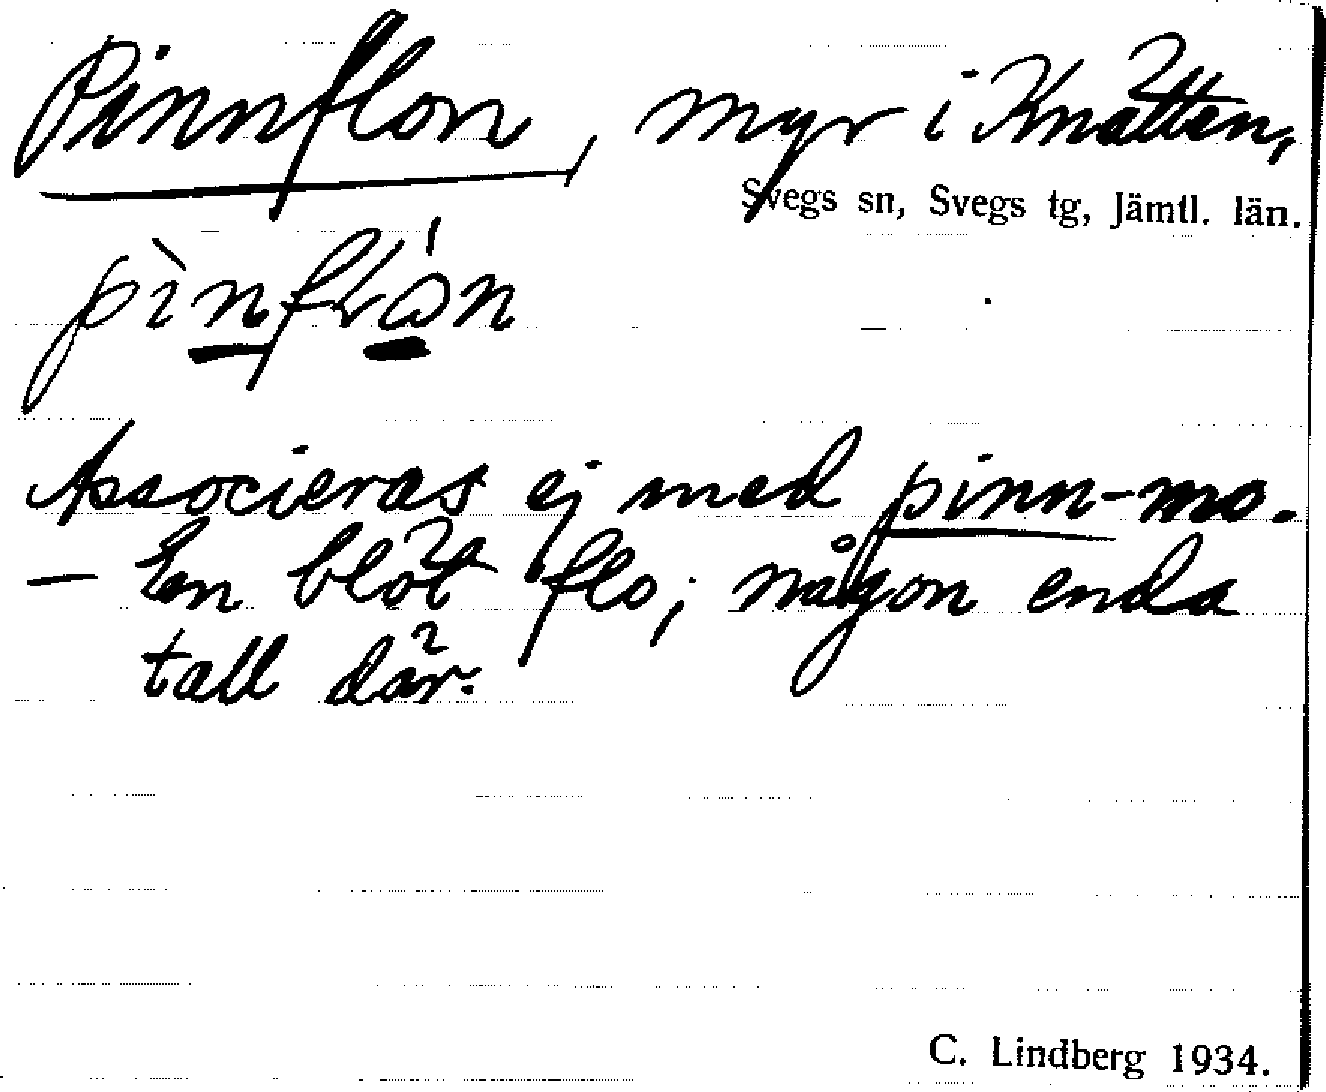 Pinnflon, myr i Knätten,
Svegs sn, Svegs tg, Jämtl. län.
Associeras ej med pinn-mo.
— En blöt flo; någon enda
tall där.
C. Lindberg 1934.